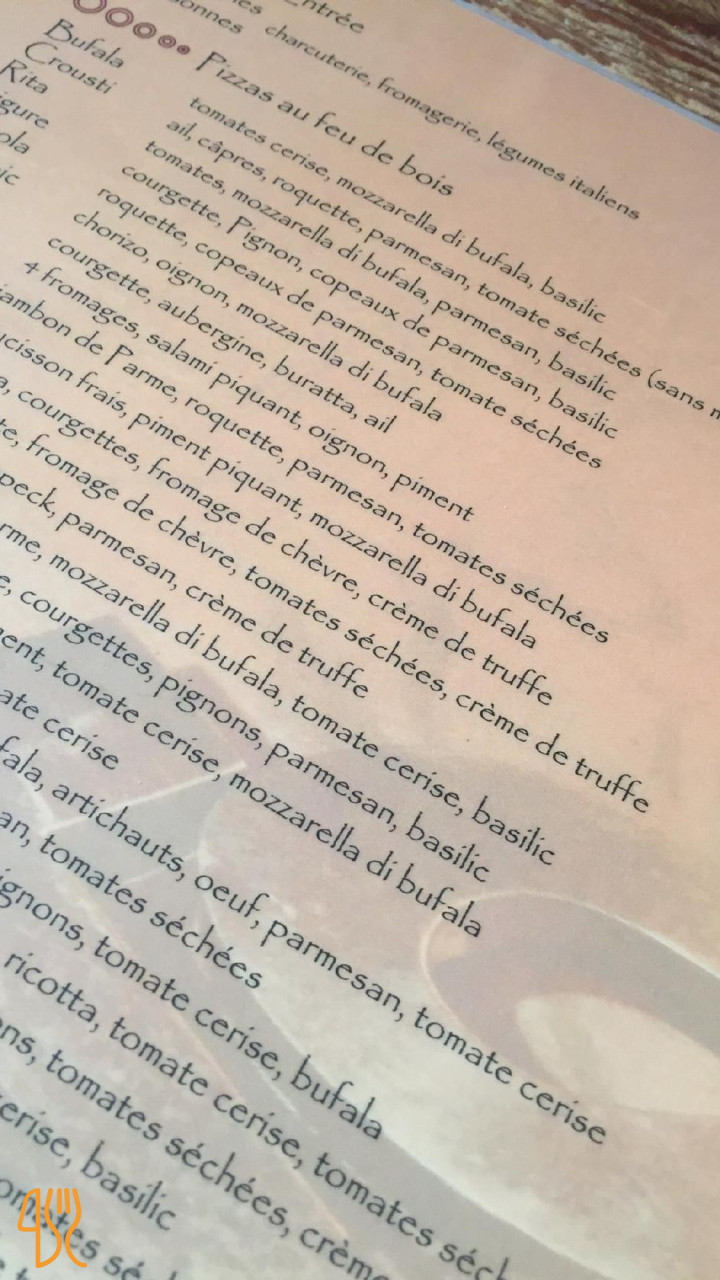 Entrée
charcuterie, fromagerie, légumes italiens
Pizzas au feu de bois
Bufala tomates cerise, mozzarella di bufala, basilic
Crousti ail, câpres, roquette, parmesan, tomate séchées (sans
Rita tomates, mozzarella di bufala, parmesan, basilic
courgette, Pignon, copeaux de parmesan, basilic
roquette, copeaux de parmesan, tomate séchées
chorizo, oignon, mozzarella di bufala
courgette, aubergine, buratta, ail
4 fromages, salami piquant, oignon, piment
jambon de Parme, roquette, parmesan, tomates séchées
frais, piment piquant, mozzarella di bufala
courgettes, fromage de chèvre, crème de truffe
fromage de chèvre, tomates séchées, crème de truffe
speck, parmesan, crème de truffe
mozzarella di bufala, tomate cerise, basilic
courgettes, pignons, parmesan, basilic
tomate cerise, mozzarella di bufala
cerise
artichauts, oeuf, parmesan, tomate cerise
tomates séchées
tomate cerise, bufala
ricotta, tomate cerise, tomates
tomates séchées, crème
cerise, basilic